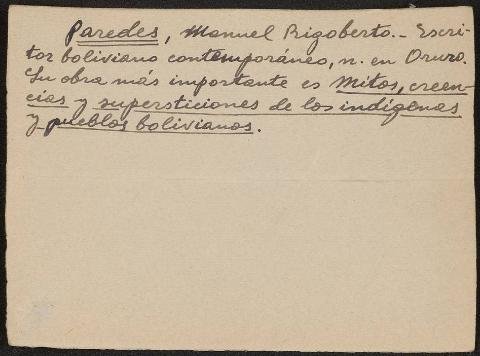 Paredes, Manuel Rigoberto.- Escri-
tor boliviano contemporáneo, n. en Oruro.
Su obra más importante es Mitos, creen-
cias y supersticiones de los indígenas
y pueblos bolivianos.